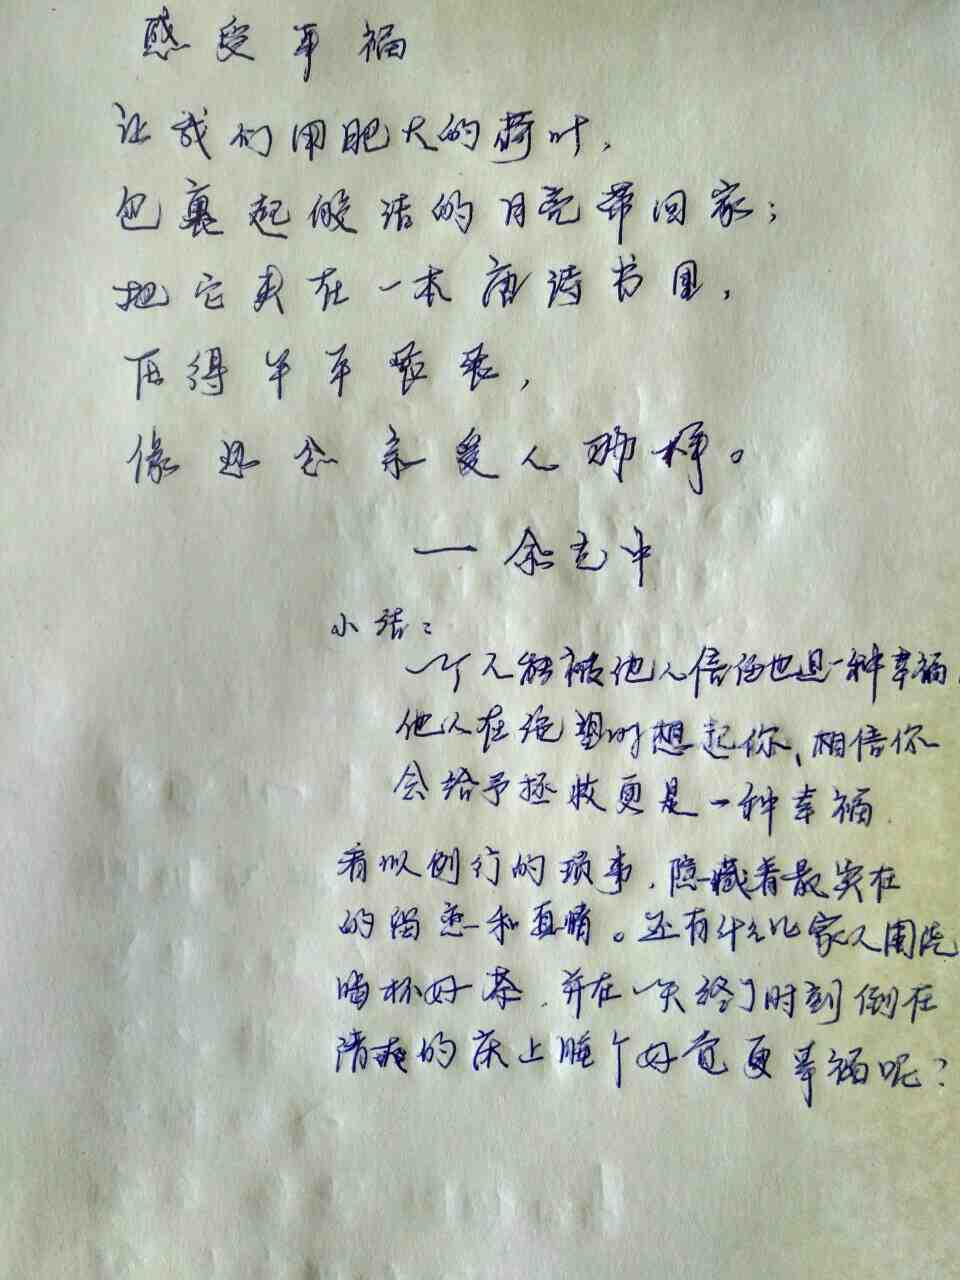 感受幸福
让我们用肥大的荷叶，
包裹起皎洁的月亮带回家；
把它夹在一本唐诗书里，
压得平平整整，
像思念亲爱人那样。
——余光中
小结：
一个人能被他人信任也是一种幸福，
他人在绝望时想起你、相信你
会给予拯救更是一种幸福
看似例行的琐事，隐藏着最实在
的留恋和真情。还有什么比家人围
喝杯好茶，并在一天终了时刻倒在
清爽的床上睡个好觉更幸福呢？